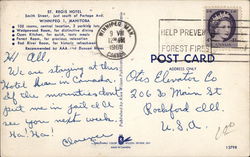 ST. REGIS HOTEL
Smith Street, just south of Portage Ave.
WINNIPEG 1, MANITOBA
100 rooms, central location, 3 parking lots
Wedgewood Room, for distinctive dining
Open Kitchen, for quick, tasty meals
Forest Room, for gracious relaxation
Red River Room, for history, refreshment
Recommended by AAA
WINNIPEG, MAN.
PM
HELP PREVENT
FOREST FIRES
POST CARD
ADDRESS
Hi All,
We are staying at this
Hotel Dear in Canada.
if the mounties don't
put me in jail I'll
see you next week.
Ha! Ha!
Clarence
Otis Elevator Co
206 So Main St
Rockford Ill.
U.S.A.